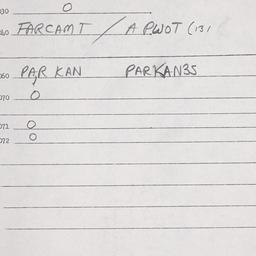 030 O
040 FARCAMT / A PWOT (131
060 PAR KAN PARKAN3S
070 O
071 O
072 O